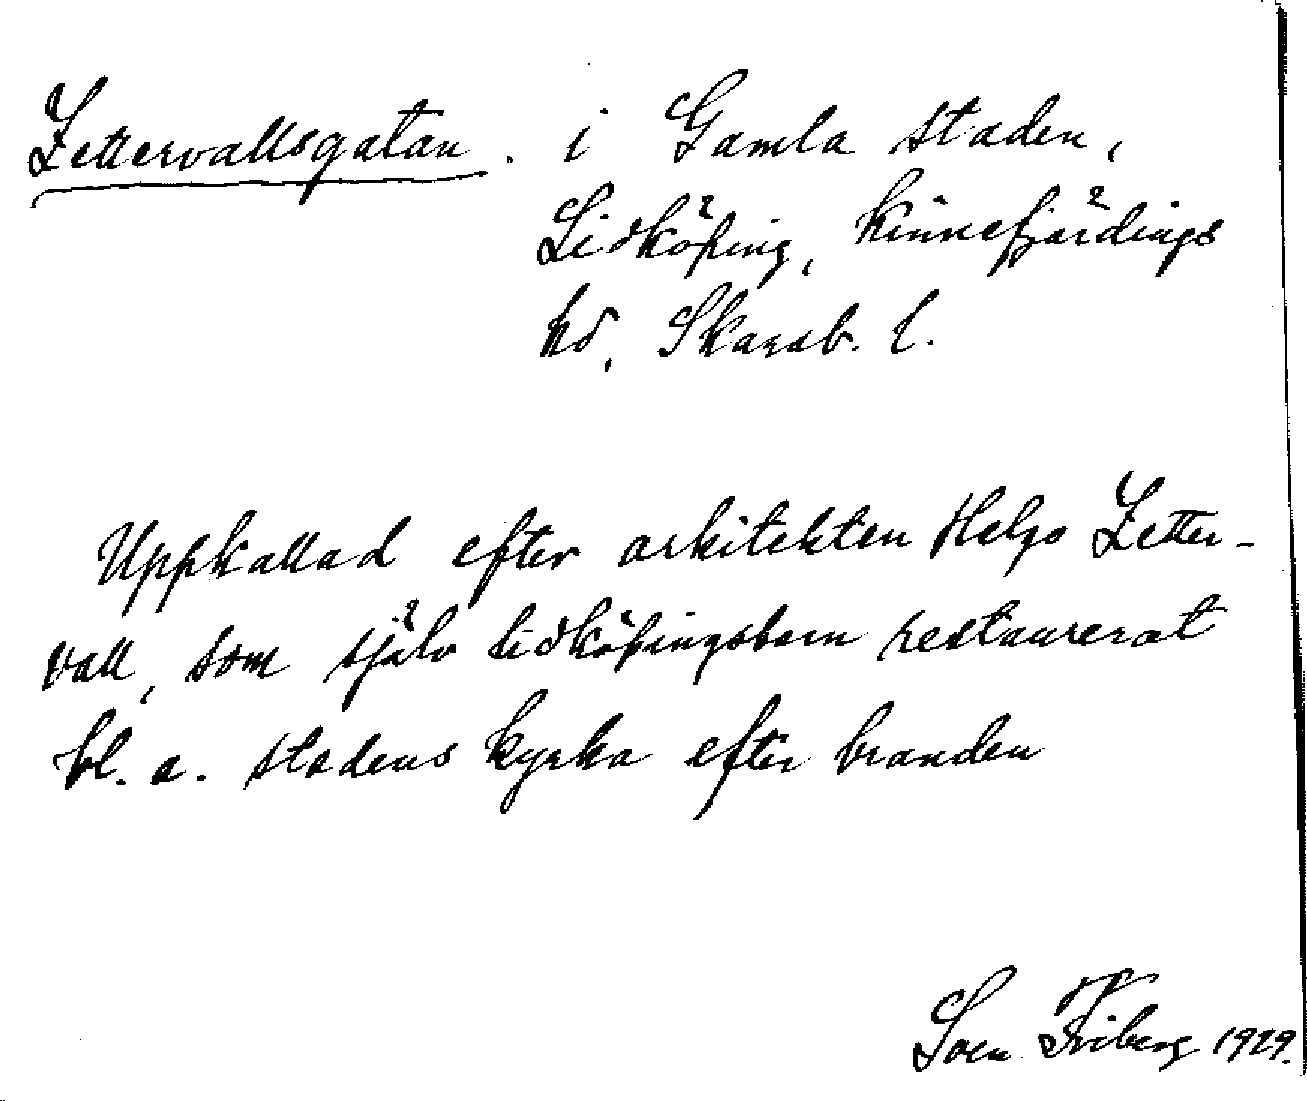 Zettervallsgatan. i Gamla staden,
Lidköping, Kinnefjärdings
hd, Skarab. l.
Uppkallad efter arkitekten Helgo Zetter-
vall, som själv lidköpingsbarn restaurerat
bl. a. stadens kyrka efter branden
Sven Friberg 1929.